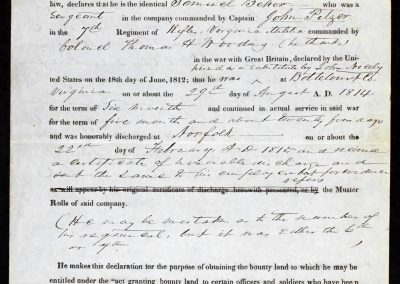 law, declares that he is the identical Samuel Beker who was a
Sergeant in the company commanded by Captain John Pitzer
in the 7th Regiment of Rifles, Virginia Militia commanded by
Colonel Thomas A Wooding (he thinks)
in the war with Great Britain, declared by the Uni-
as a Substitute by John Nicely
ted States on the 18th day of June, 1812; that he was at Bottetourt Co.
Virginia on or about the 29th day of August A. D. 1814
for the term of Six month and continued in actual service in said war
for the term of five month and about twenty five days
and was honorably discharged at Norfolk on or about the
22nd day of Febraday A. D. 1815 and
a certificate of honorable discharge and
sent the same to his employer but for evidence
refers
as will appear by his original certificate of discharge herewith presented, or by the Muster
Rolls of said company.
(He may be mistaken as to the number of
his regiment, but it was either the 6th
or 7th
He makes this declaration for the purpose of obtaining the bounty land to which he may be
entitled under the "act granting bounty land to certain officers and soldiers who have been